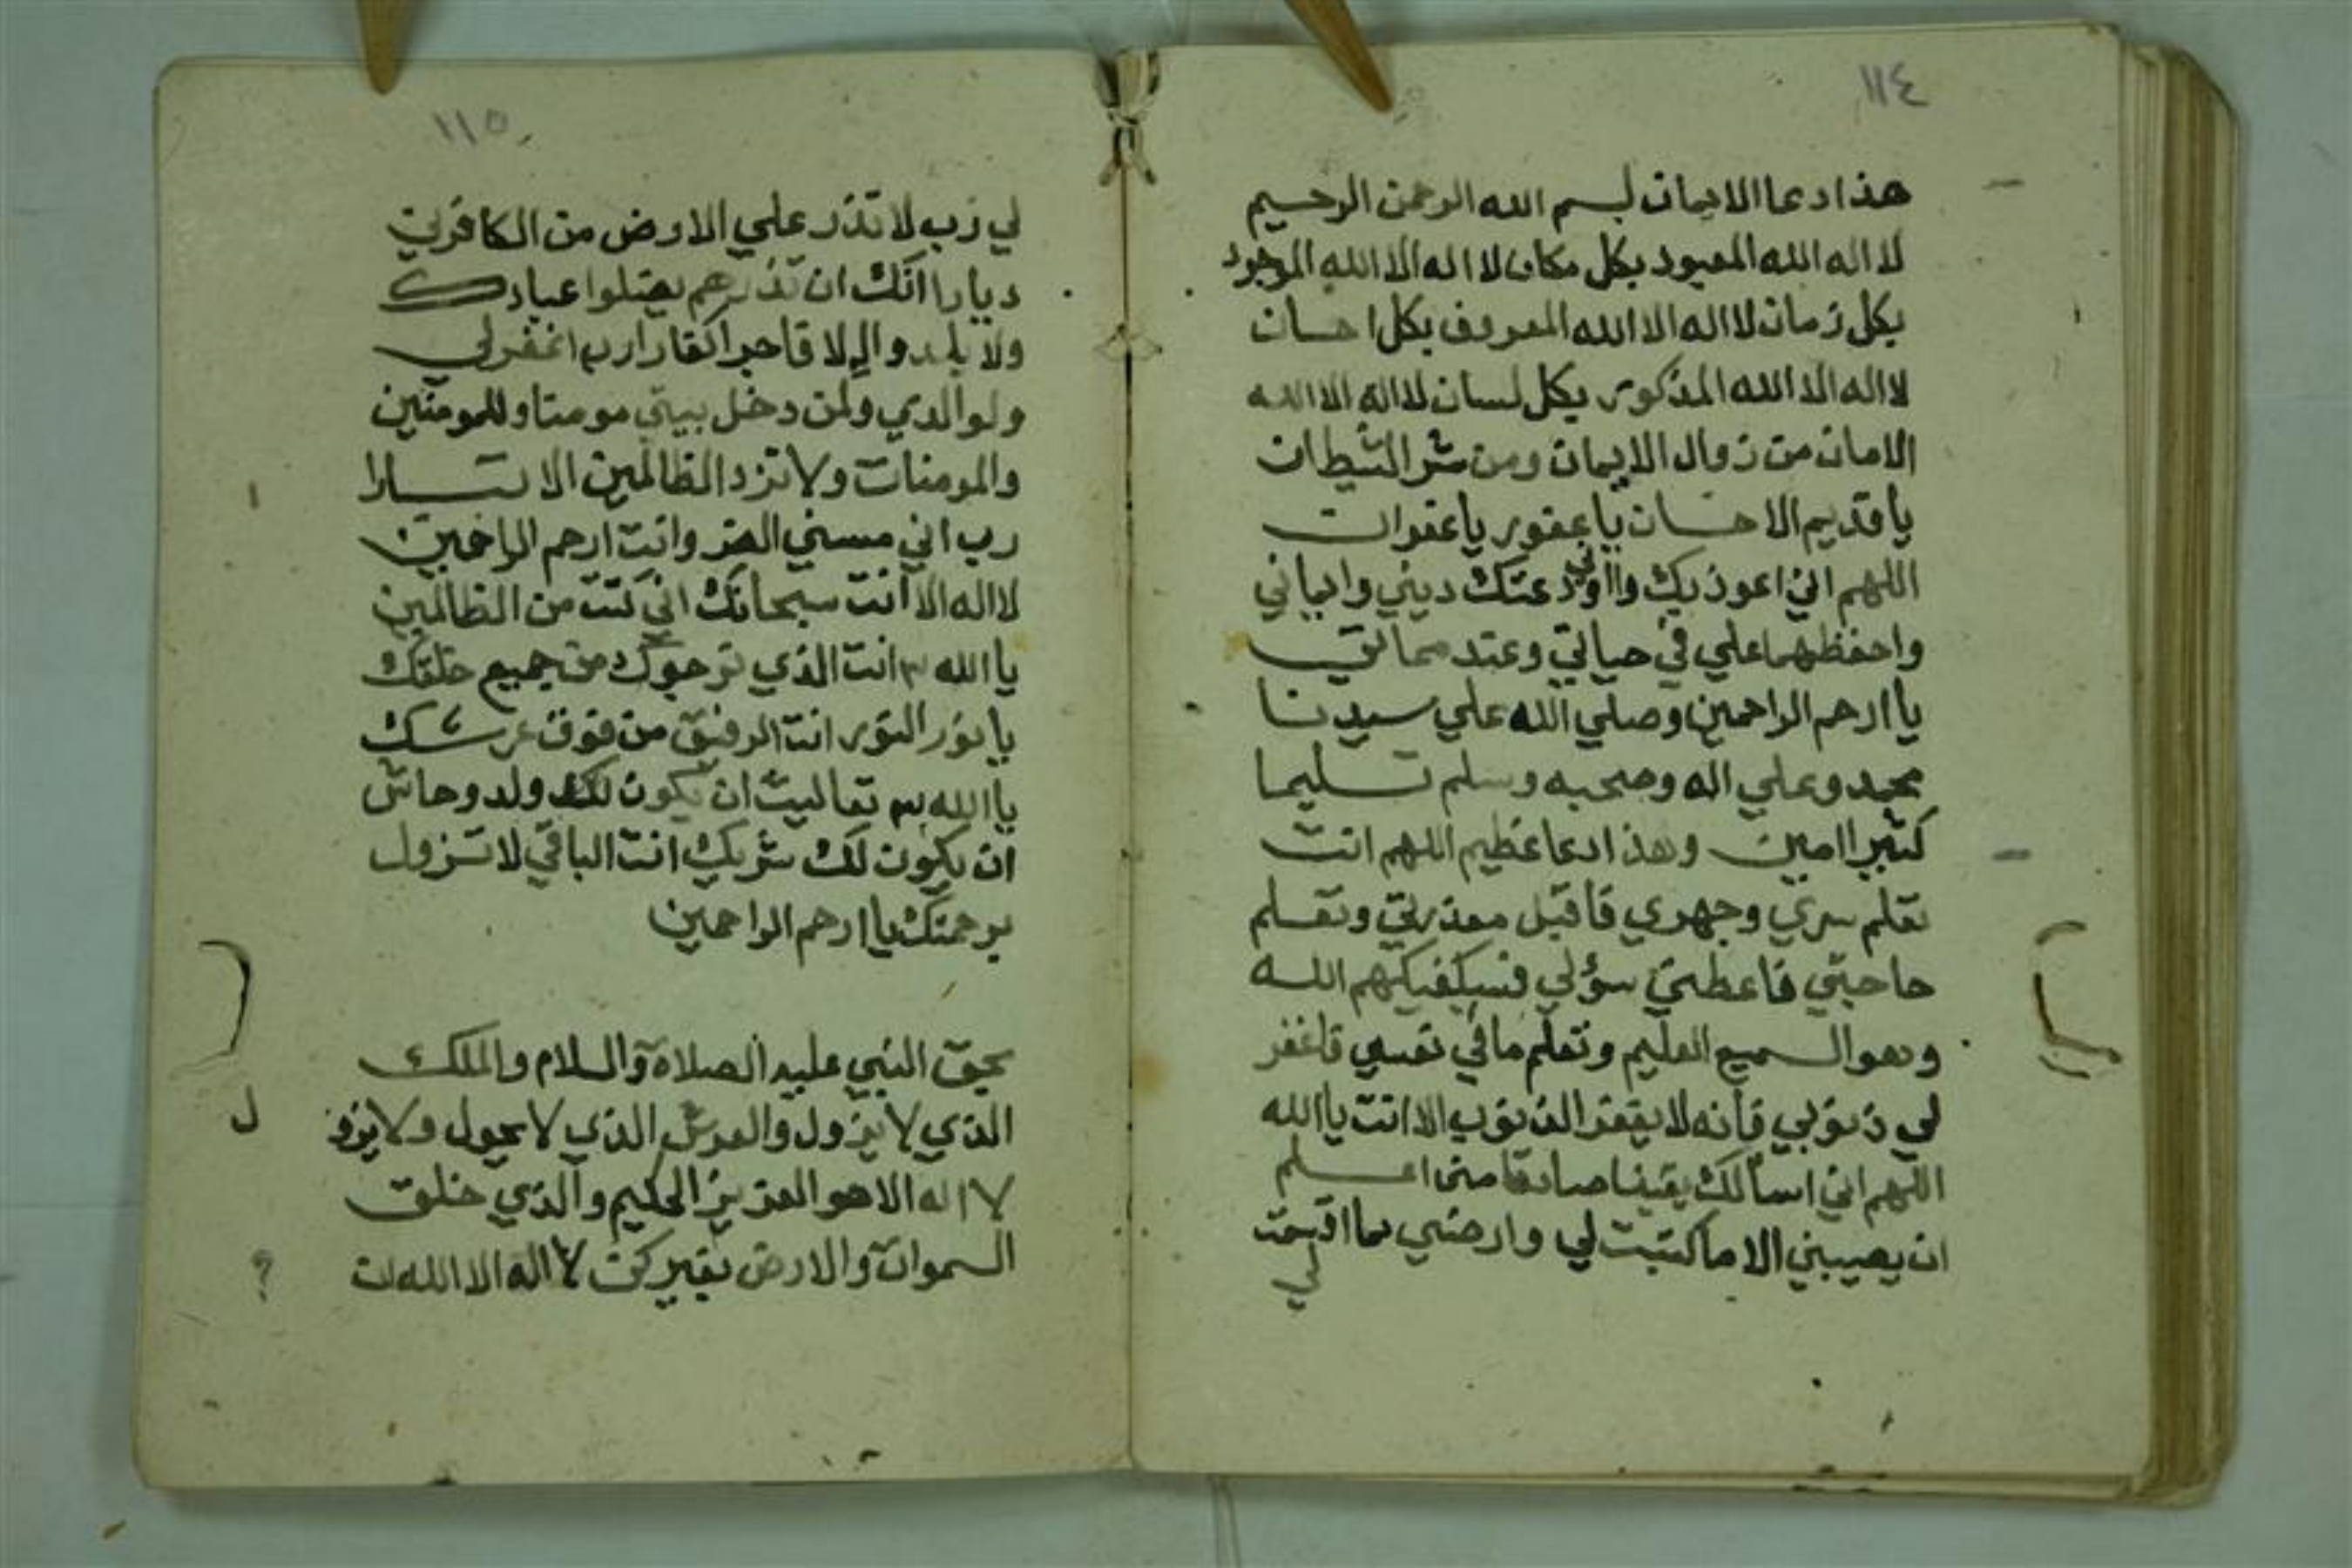 ١١٤
هذا دعا الايمان بسم الله الرحمن الرحيم
لا اله الله المعبود بكل مكان لا اله الا الله الموجود
بكل زمان لا اله الا الله المعروف بكل احسان
لا اله الا الله المذكور بكل لسان لا اله الا الله
الامان من زوال الايمان ومن شر الشيطان
يا قديم الاحسان يا غفور يا غفران
اللهم اني اعوذ بك واودعتك ديني وايماني
واحفظهما علي في حياتي وعند مماتي
يا ارحم الراحمين وصلي الله علي سيدنا
محمد وعلي اله وصحبه وسلم تسليما
كثيرا امين وهذا دعا عظيم اللهم انت
تعلم سري وجهري فاقبل معذرتي وتعلم
حاجتي فاعطني سؤلي فسيكفيكهم الله
وهو السميع العليم وتعلم ما في نفسي فاغفر
لي ذنوبي فانه لا يغفر الذنوب الا انت يا الله
اللهم اني اسالك يقينا صادقا حتى اعلم
ان يصيبني الا ما كتبت لي وارضني بما اقسمت
لي
١١٥
لي رب لا تذر علي الارض من الكافرين
ديارا انك ان تذرهم يضلوا عبادك
ولا يلدو الا فاجرا كفارا رب اغفر لي
ولوالدي ولمن دخل بيتي مومنا وللمومنين
والمومنات ولا تزد الظالمين الا تبارا
رب اني مسني الضر وانت ارحم الراحمين
لا اله الا انت سبحانك اني كنت من الظالمين
يا الله ٣ انت الذي نرجوك من جميع خلقك
يا نور النور انت الرفيق من فوق عرشك
يا الله ٣ تعاليت ان يكون لك ولد وحاش
ان يكون لك شريك انت الباقي لا تزول
برحمتك يا ارحم الراحمين
بحق النبي عليه الصلاة والسلام والملك
الذي لا يزول والعرش الذي لا يحول ولا يزو
ل
لا اله الا هو العزيز الحكيم والذي خلق
السموات والارض بغير كن لا اله الا الله ان
؟